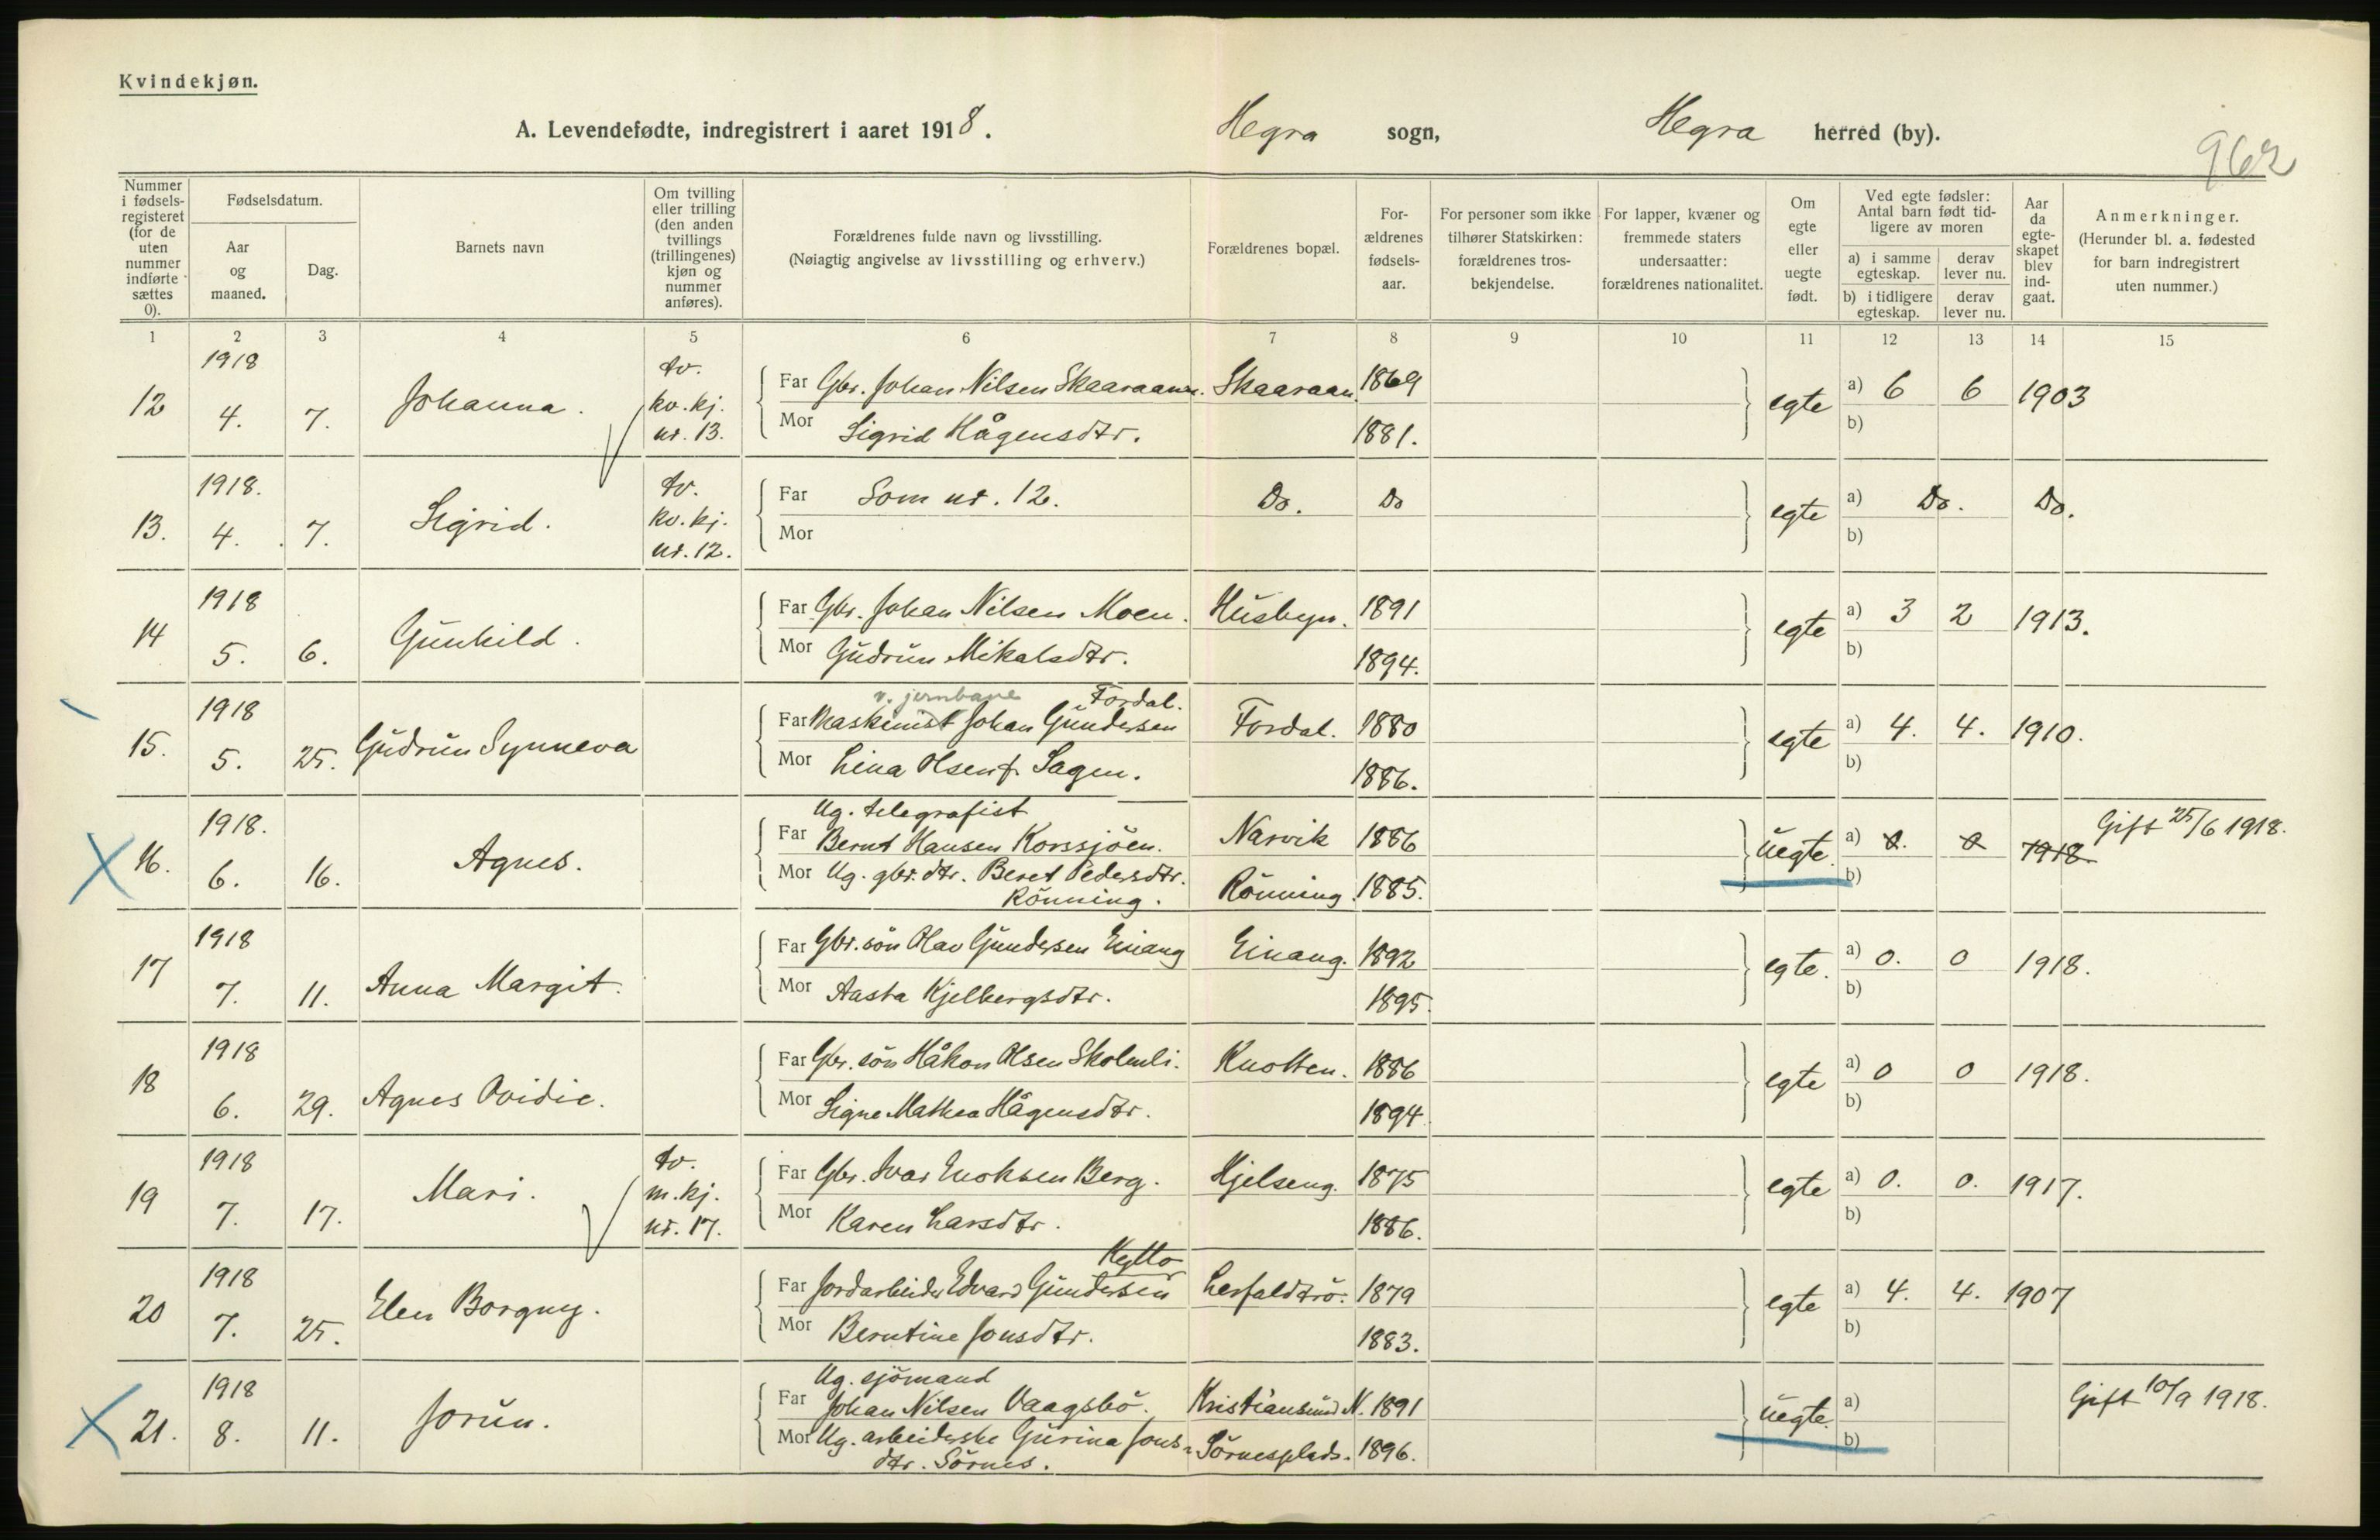 Kvindekjøn.
A. Levendefødte, indregistrert i aaret 1918. Hegra sogn, Hegra herred (by).
962
Nummer i fødsels-registeret (for de uten nummer indførte sættes 0).
Fødselsdatum.
Aar og maaned.
Dag.
Barnets navn
Om tvilling eller trilling (den anden tvillings (trillingenes) kjøn og nummer anføres).
Forældrenes fulde navn og livsstilling.
(Nøiagtig angivelse av livsstilling og erhverv.)
Forældrenes bopæl.
For-ældrenes fødsels-aar.
For personer som ikke tilhører Statskirken: forældrenes tros-bekjendelse.
For lapper, kvæner og fremmede staters undersaatter: forældrenes nationalitet.
Om egte eller uegte født.
Ved egte fødsler: Antal barn født tid-ligere av moren
a) i samme egteskap.
derav lever nu.
b) i tidligere egteskap.
derav lever nu.
Aar da egte-skapet blev ind-gaat.
Anmerkninger.
(Herunder bl. a. fødested for barn indregistrert uten nummer.)
1 2 3 4 5 6 7 8 9 10 11 12 13 14 15
12 1918 4. 7. Johanna. tv. kv. kj. nr. 13.
Far Gbr. Johan Nilsen Skaaraanen. Skaaraan. 1869
Mor Sigrid Hågensdtr. 1881.
egte a) 6 6 1903
b)
13. 1918. 4. 7. Sigrid. tv. kv. kj. nr. 12.
Far Som nr. 12. Do. Do
Mor
egte a) Do. Do.
b)
14 1918 5. 6. Gunhild.
Far Gbr. Johan Nilsen Moen. Husbyn. 1891
Mor Gudrun Mikalsdtr. 1894.
egte a) 3 2 1913.
b)
15. 1918 5. 25. Gudrun Synneva
v. jernbane Fordal.
Far Maskinist Johan Gundersen Fordal. 1880
Mor Lina Olsen f. Sagen. 1886.
egte a) 4. 4. 1910.
b)
16. 1918. 6. 16. Agnes.
Ug. telegrafist
Far Bernt Hansen Korssjöen. Narvik 1886
Mor Ug. gbr. dtr. Beret Pedersdtr. Rönning. Rönning. 1885.
uegte. a) 0. 0 1918.
b)
Gift 25/6 1918.
17 1918 7. 11. Anna Margit.
Far Gbr. sön Olav Gundersen Einang Einang. 1892
Mor Aasta Kjelbergsdtr. 1895.
egte. a) 0. 0 1918.
b)
18 1918 6. 29. Agnes Ovidie.
Far Gbr. sön Håkon Olsen Skolmli. Knotten. 1886
Mor Signe Mathea Hågensdtr. 1894
egte a) 0 0 1918.
b)
19 1918 7. 17. Mari. tv. m. kj. nr. 17.
Far Gbr. Ivar Enoksen Berg. Hjelseng. 1875
Mor Karen Larsdtr. 1886.
egte a) 0. 0. 1917.
b)
20 1918 7. 25. Elen Borgny.
Far Jordarbeider Edvard Gundersen Kytto Lerfaldtrö. 1879
Mor Berntine Jonsdtr. 1883.
egte a) 4. 4. 1907
b)
21. 1918 8. 11. Jorun.
Ug. sjömand
Far Johan Nilsen Vaagsbö. Kristiansund N. 1891
Mor Ug. arbeiderske Gurina Jons- Sörnesplads. 1896.
dtr. Sörnes.
uegte. a)
b)
Gift 10/9 1918.